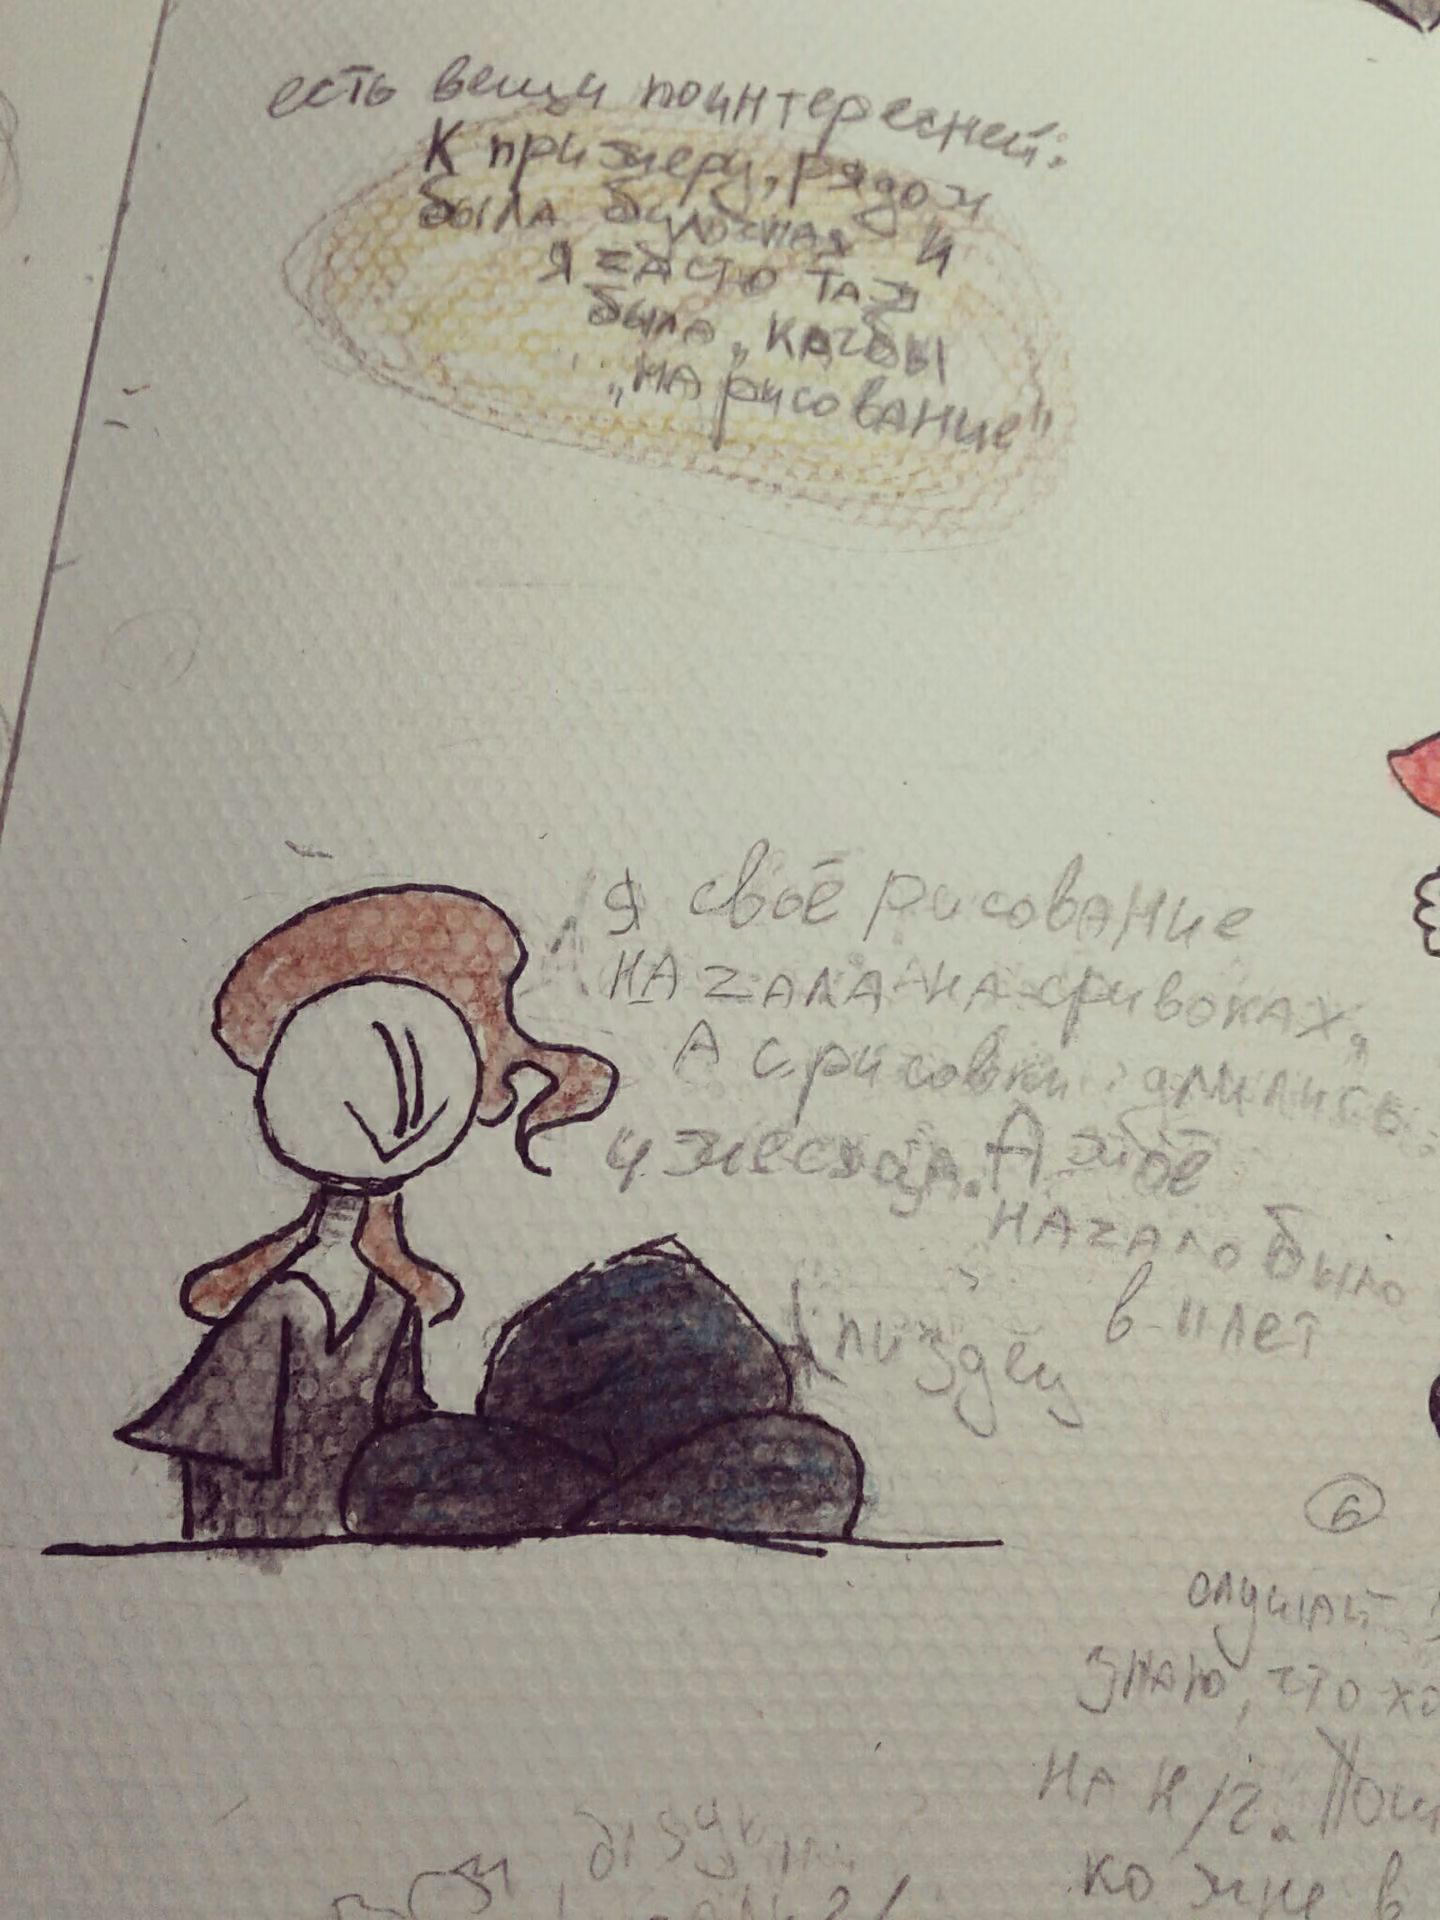 есть вещи поинтересней:
К примеру, рядом
была булочная и
я часто там
была, какбы
"на рисование"
Я своё рисование
начала на сривоках,
А срисовки длились
и месяца. А моё
начало было
в 11 лет
пиздец
6
слушай
знаю, что
на н/г.
ко мне в